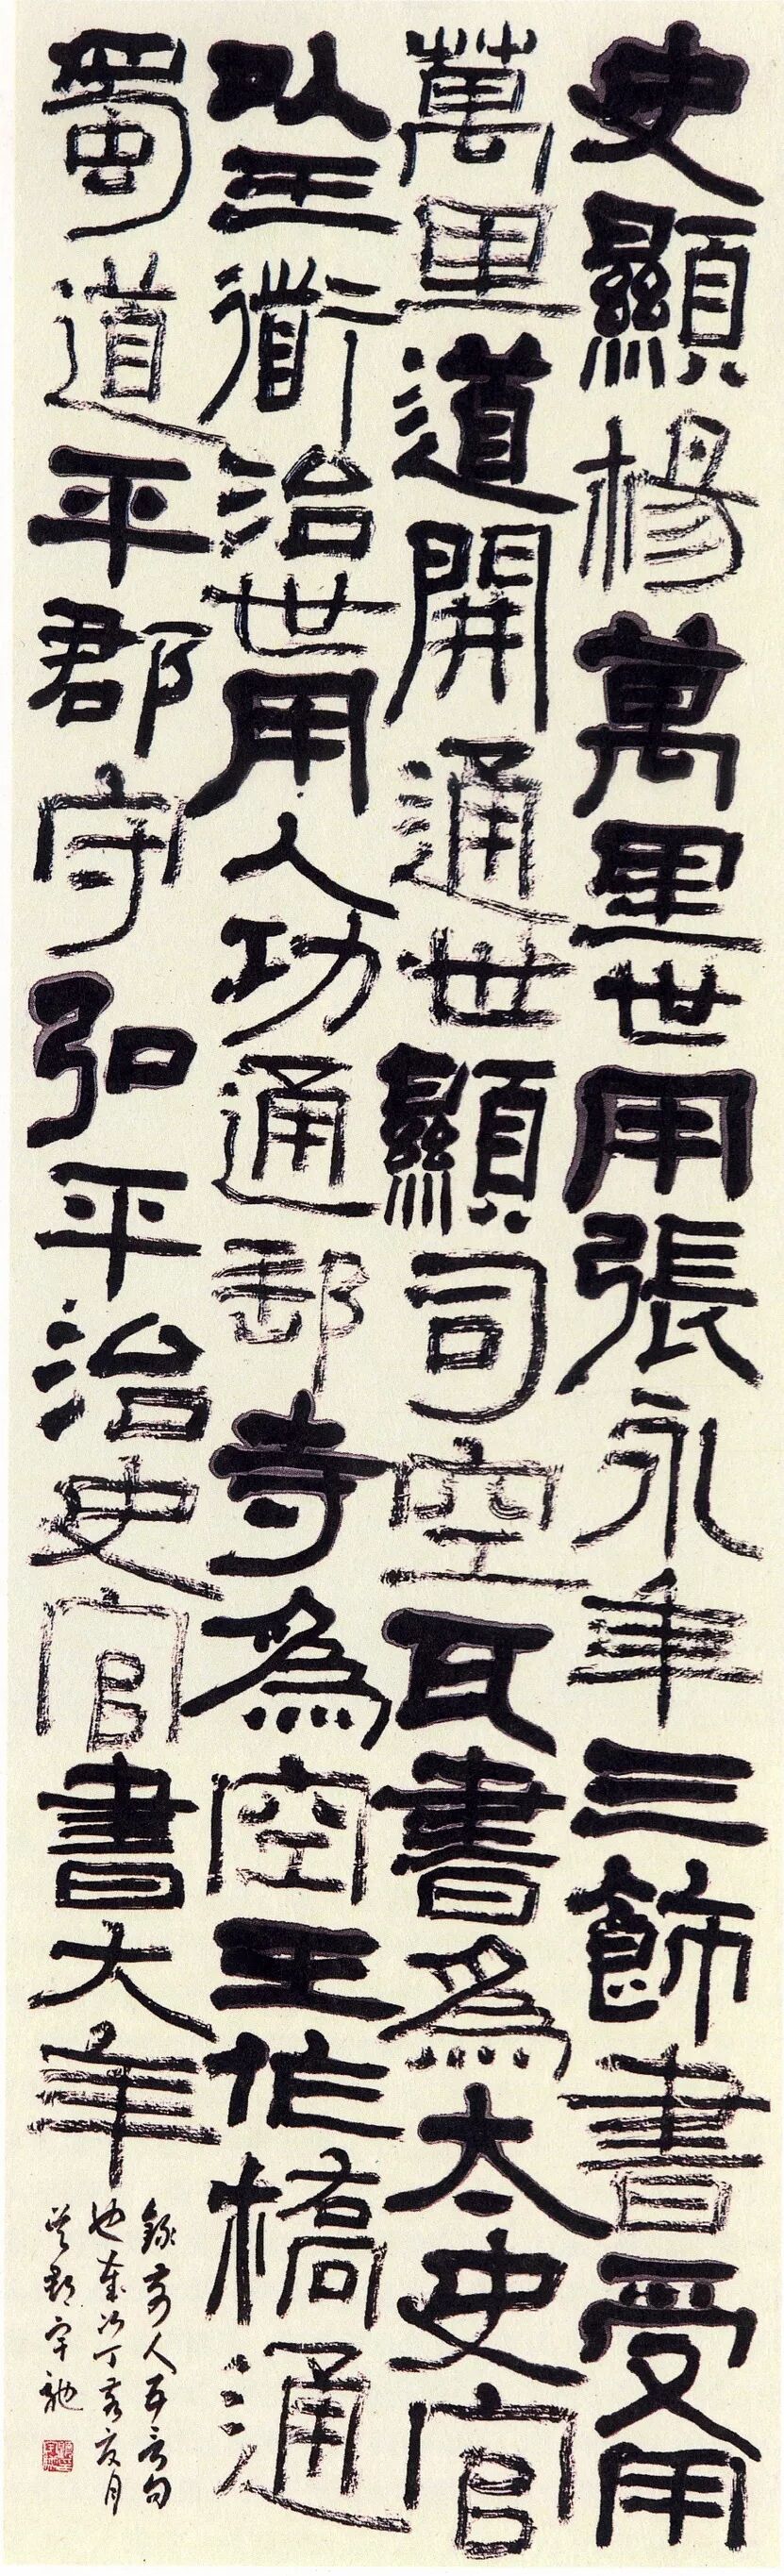 史顯楊萬里世用張永年三飾書受用
萬里道開通世顯司空瓦書為太史官
以王衜治世用人功通郵寺為空王作橋通
蜀道平郡守弘平治史官書大年
錄前人五言句
也歲次丁亥夏月
吳郡宇馳